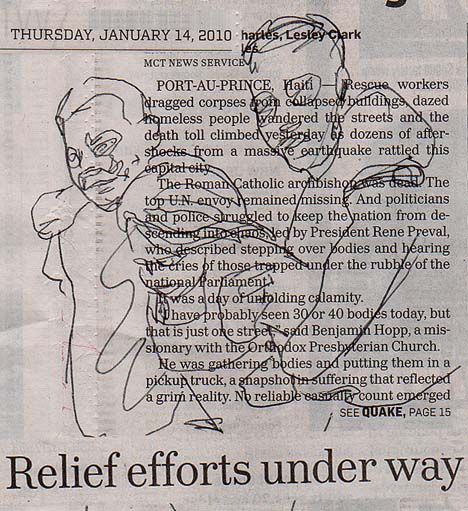 THURSDAY, JANUARY 14, 2010
harles, Lesley Clark
les
MCT NEWS SERVICE
PORT-AU-PRINCE, Haiti — Rescue workers
dragged corpses from collapsed buildings, dazed
homeless people wandered the streets and the
death toll climbed yesterday as dozens of after-
shocks from a massive earthquake rattled this
capital city.
The Roman Catholic archbishop was dead. The
top U.N. envoy remained missing. And politicians
and police struggled to keep the nation from de-
scending into chaos, led by President Rene Preval,
who described stepping over bodies and hearing
the cries of those trapped under the rubble of the
national Parliament.
It was a day of unfolding calamity.
"I have probably seen 30 or 40 bodies today, but
that is just one street," said Benjamin Hopp, a mis-
sionary with the Orthodox Presbyterian Church.
He was gathering bodies and putting them in a
pickup truck, a snapshot in suffering that reflected
a grim reality. No reliable casualty count emerged
SEE QUAKE, PAGE 15
Relief efforts under way